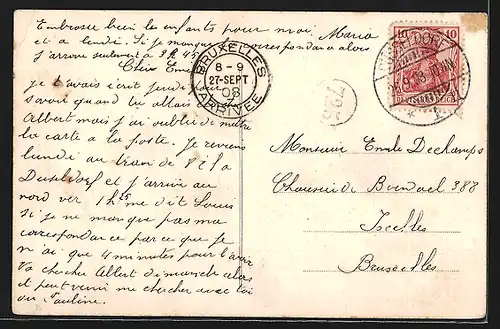 Embrasse bien les enfants pour moi Maria
et a lundi. Si je manque correspondance alors
j'arrive seulement a 3h 45
Cher Emile
je t'avais écrit jeudi pour
savoir quand tu allais
Albert mais j'ai oublié de mettre
la carte a la poste. Je reviens
lundi au train de
Dusseldorf et j'arrive au
nord ver 1h me dit Louis
Si je ne manque pas ma
correspondance parce que je
n'ai que 4 minutes pour
Va chercher Albert dimanche alors
et peut venir me chercher avec toi
Pauline
BRUXELLES
8-9
27-SEPT
08
ARRIVÉE
725
10 10
DEUTSCHES REICH
Monsieur Emile Dechamps
Chaussée de Boendael 388
Ixelles
Bruxelles